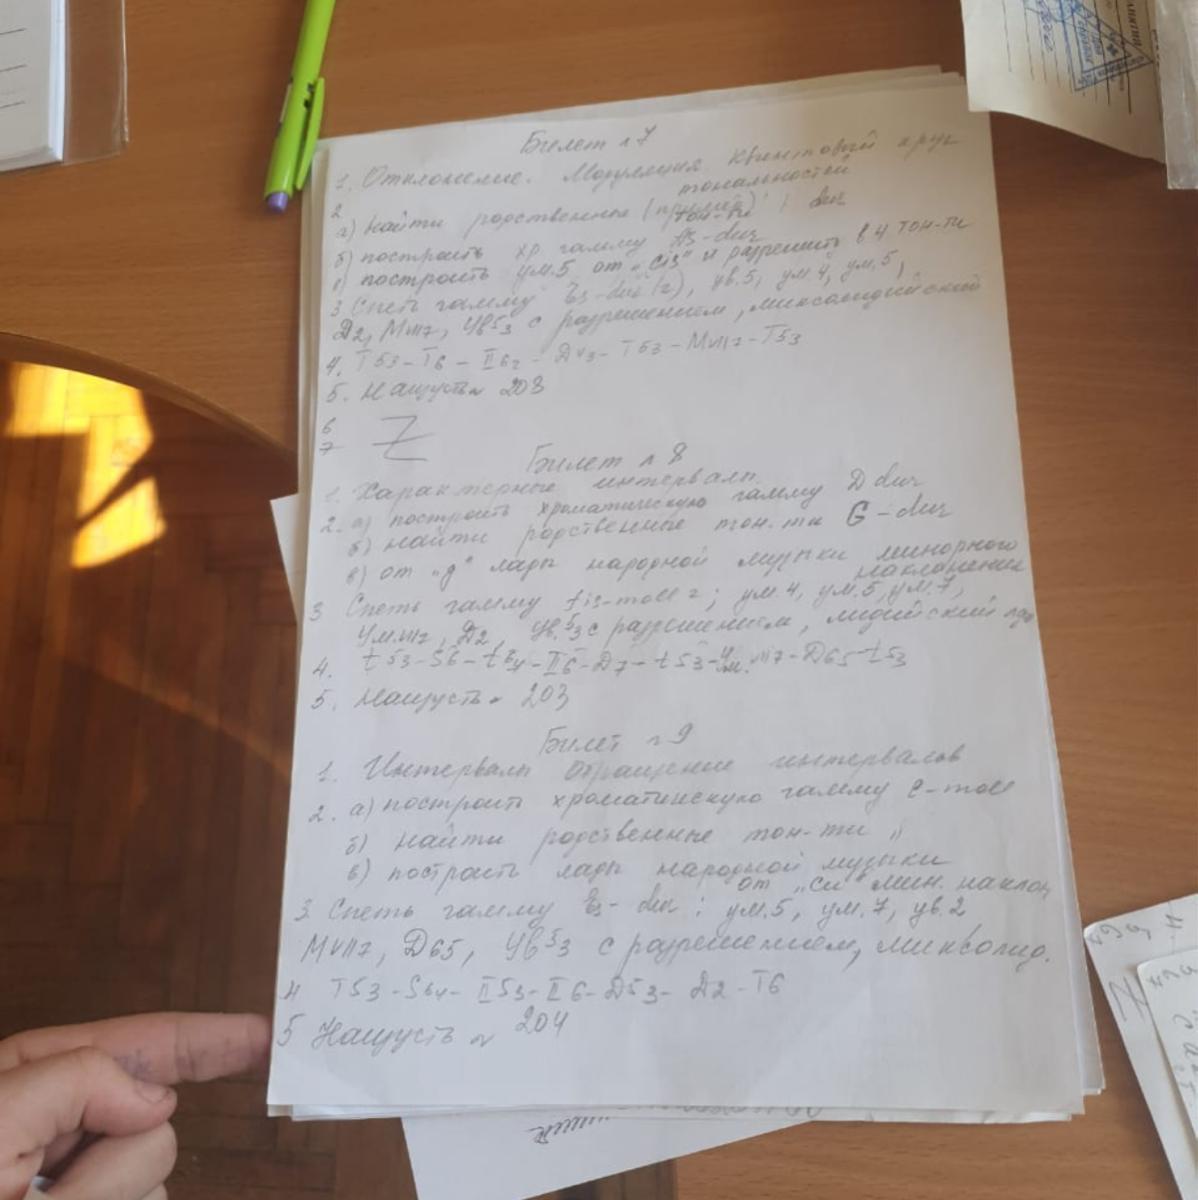 Билет №7
1. Отклонение. Модуляция. Квинтовый круг
тональностей
2
а) Найти родственные (прямей) dur
тон-ти
б) построить хр гамму As-dur
в) построить ум.5 от "cis" и разрешить в 4 тон-ти
3 Спеть гамму Es-dur (г), ув.5, ум.4, ум.5,
Д2, МVII7, Ув53 с разрешением, миксолидийский
4. T53-T6-II62-Д43-T53-МVII7-T53
5. Наизусть № 208
6
7
Билет №8
1. Характерные интервалы.
2. а) построить хроматическую гамму D dur
б) найти родственные тон-ти G-dur
в) от "д" лады народной музыки минорного
наклонения
3 Спеть гамму fis-moll г; ум.4, ум.5, ум.7,
Ум.VII7, Д2, Ув.53 с разрешением, лидийский лад
4. t53-S6-t64-II6-Д7-t53-Ум.VII7-Д65-t53
5. Наизусть № 203
Билет №9
1. Интервалы Обращение интервалов
2. а) построить хроматическую гамму e-moll
б) найти родственные тон-ти "
в) построить лады народной музыки
от "си" мин. наклон
3. Спеть гамму Es-dur: ум.5, ум.7, ув.2
МVII7, Д65, Ув53 с разрешением, миксолид.
4 T53-S64-II53-II6-Д53-Д2-T6
5 Наизусть № 204